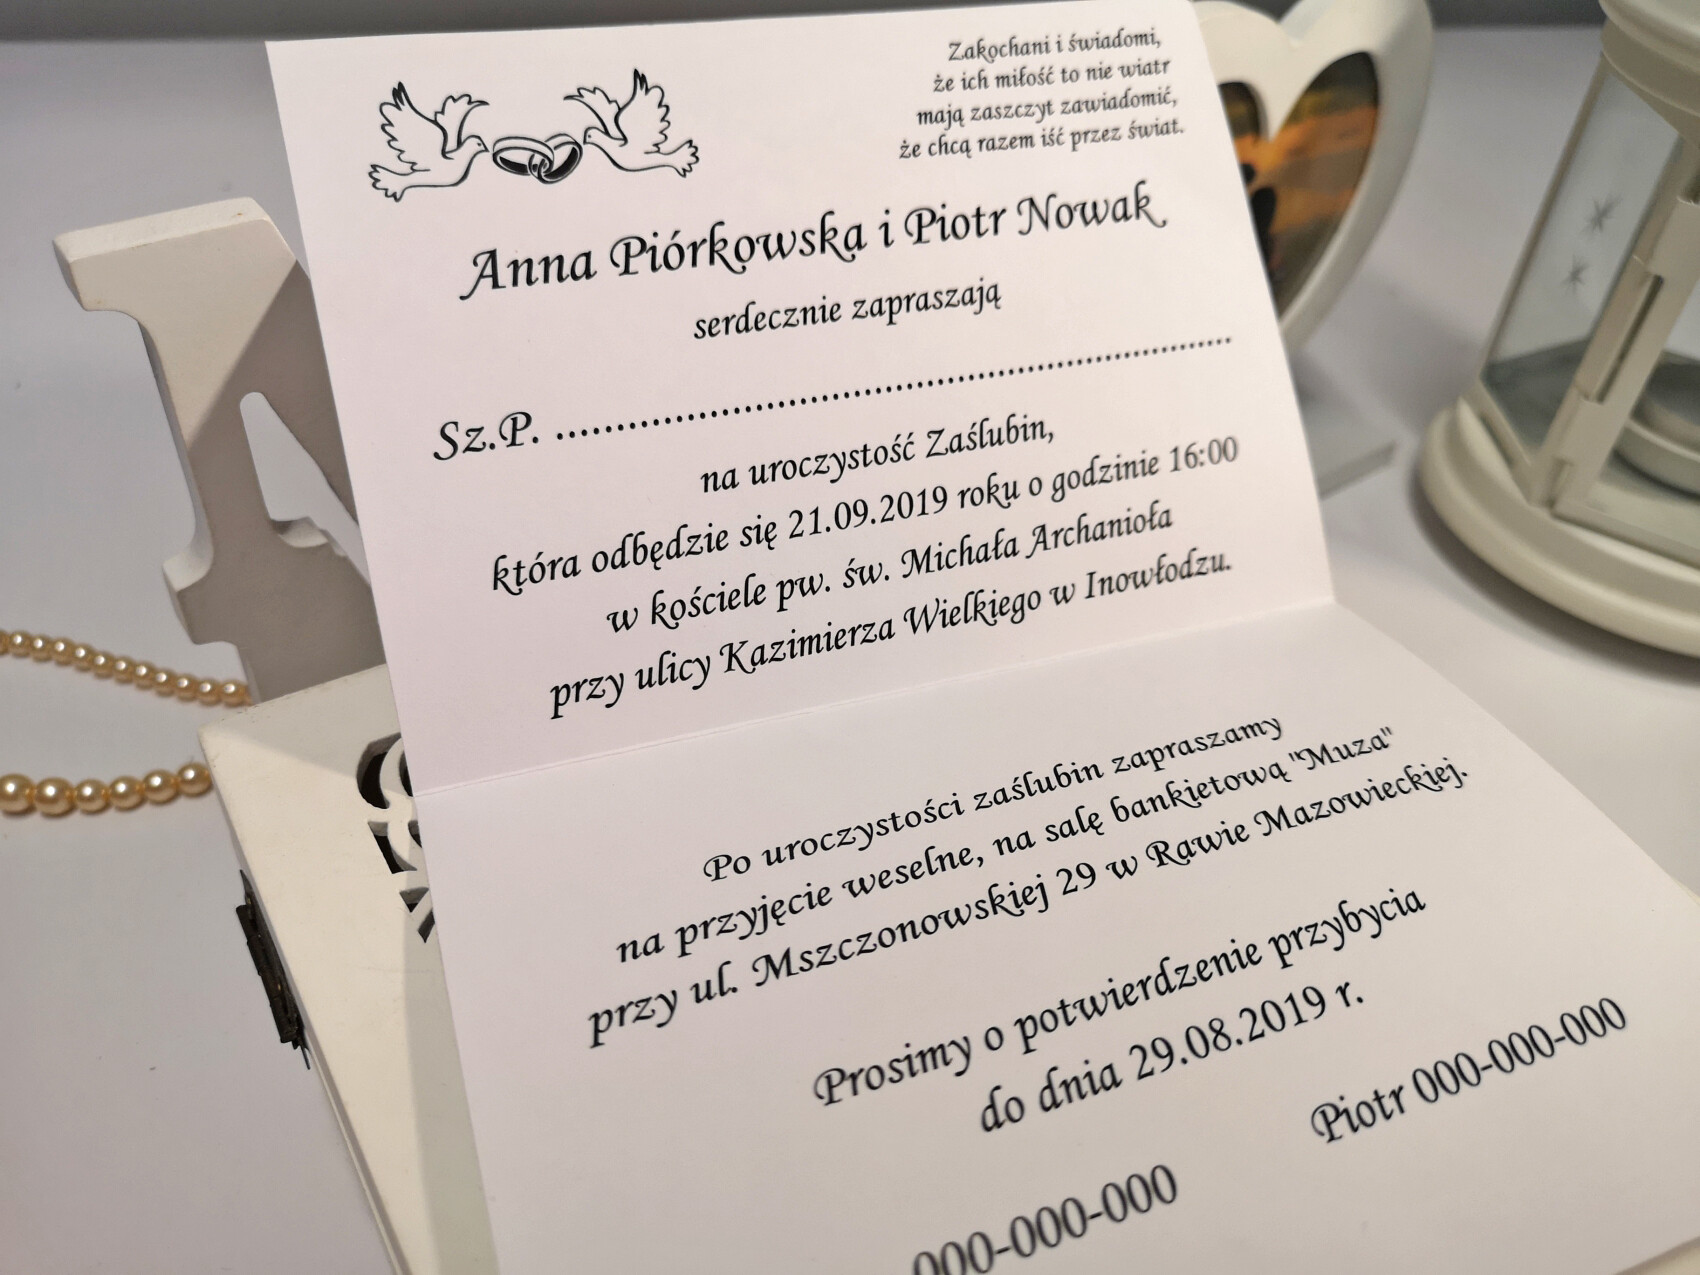 Zakochani i świadomi,
że ich miłość to nie wiatr
mają zaszczyt zawiadomić,
że chcą razem iść przez świat.
Anna Piórkowska i Piotr Nowak
serdecznie zapraszają
Sz.P. ........................................................................
na uroczystość Zaślubin,
która odbędzie się 21.09.2019 roku o godzinie 16:00
w kościele pw. św. Michała Archanioła
przy ulicy Kazimierza Wielkiego w Inowłodzu.
Po uroczystości zaślubin zapraszamy
na przyjęcie weselne, na salę bankietową "Muza"
przy ul. Mszczonowskiej 29 w Rawie Mazowieckiej.
Prosimy o potwierdzenie przybycia
do dnia 29.08.2019 r.
Piotr 000-000-000
000-000-000